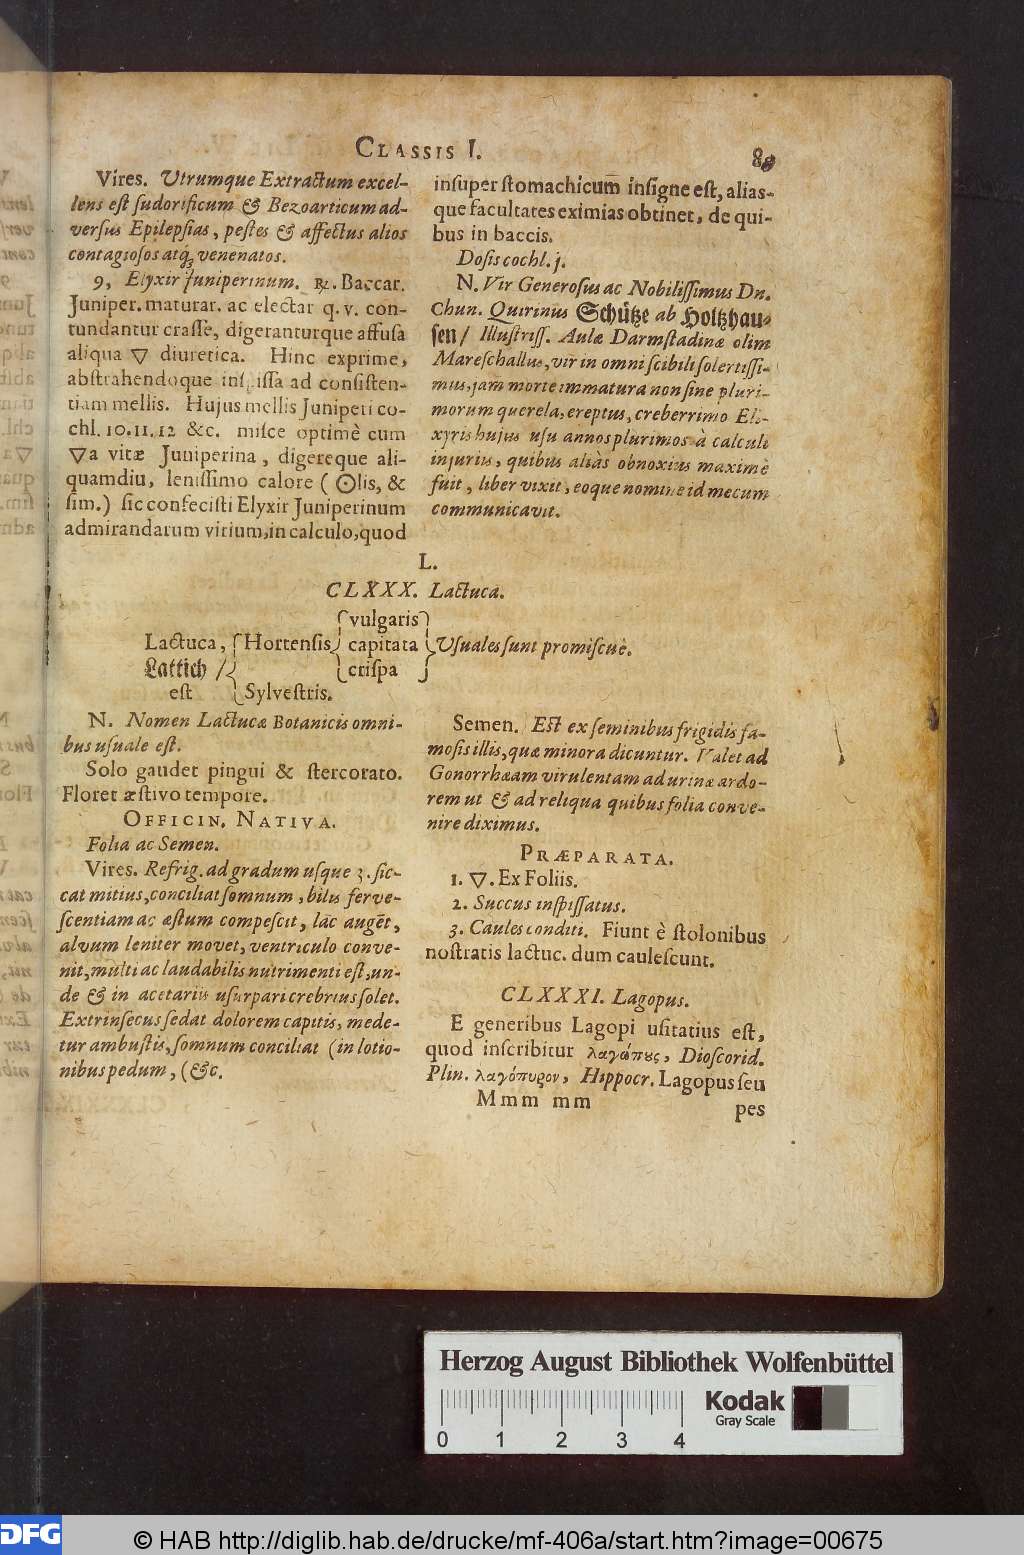 CLASSIS I.
Vires. Utrumque Extractum excel-
lens est sudorificum & Bezoarticum ad-
versus Epilepsias, pestes & affectus alios
contagiosos atq; venenatos.
9, Elyxir juniperinum. ℞. Baccar.
Juniper. maturar. ac electar q. v. con-
tundantur crassè, digeranturque affusa
aliqua ▽ diuretica. Hinc exprime,
abstrahendoque inspissa ad consisten-
tiam mellis. Hujus mellis Juniperi co-
chl. 10. 11. 12 &c. misce optimè cum
▽a vitæ Juniperina, digereque ali-
quamdiu, lenissimo calore (☉lis, &
sim.) sic confecisti Elyxir Juniperinum
admirandarum virium, in calculo, quod
insuper stomachicum insigne est, alias-
que facultates eximias obtinet, de qui-
bus in baccis.
Dosis cochl. j.
N. Vir Generosus ac Nobilissimus Dn.
Chun. Quirinus Schütze ab Holtzhau-
sen / Illustriss. Aulæ Darmstadinæ olim
Mareschallus, vir in omni scibili solertissi-
mus, jam morte immatura non sine pluri-
morum querela, ereptus, creberrimo Ely-
xyris hujus usu annos plurimos à calculi
injuriis, quibus aliàs obnoxius maximè
fuit, liber vixit, eoque nomine id mecum
communicavit.
L.
CLXXX. Lactuca.
vulgaris
Lactuca, Hortensis capitata Usuales sunt promiscuè.
Lattich / crispa
est Sylvestris.
N. Nomen Lactucæ Botanicis omni-
bus usuale est.
Solo gaudet pingui & stercorato.
Floret æstivo tempore.
OFFICIN. NATIVA.
Folia ac Semen.
Vires. Refrig. ad gradum usque 3. sic-
cat mitius, conciliat somnum, bilis ferve-
scentiam ac æstum compescit, lac auget,
alvum leniter movet, ventriculo conve-
nit, multi ac laudabilis nutrimenti est, un-
de & in acetariis usurpari crebrius solet.
Extrinsecus sedat dolorem capitis, mede-
tur ambustis, somnum conciliat (in lotio-
nibus pedum, (&c.
Semen. Est ex seminibus frigidis fa-
mosis illis, quæ minora dicuntur. Valet ad
Gonorrhæam virulentam ad urinæ ardo-
rem ut & ad reliqua quibus folia conve-
nire diximus.
PRÆPARATA.
1. ▽. Ex Foliis.
2. Succus inspissatus.
3. Caules conditi. Fiunt è stolonibus
nostratis lactuc. dum caulescunt.
CLXXXI. Lagopus.
E generibus Lagopi usitatius est,
quod inscribitur λαγώπυς, Dioscorid.
Plin. λαγόπυρον, Hippocr. Lagopus seu
Mmm mm
pes
Herzog August Bibliothek Wolfenbüttel
0 1 2 3 4
Kodak
Gray Scale
DFG
© HAB http://diglib.hab.de/drucke/mf-406a/start.htm?image=00675